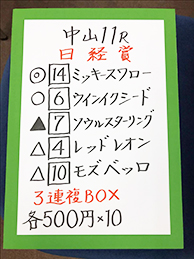 中山11R
日経賞
◎ 14 ミッキースワロー
○ 6 ウインイクシード
▲ 7 ソウルスターリング
△ 4 レッドレオン
△ 10 モズベッロ
3連複BOX
各500円×10